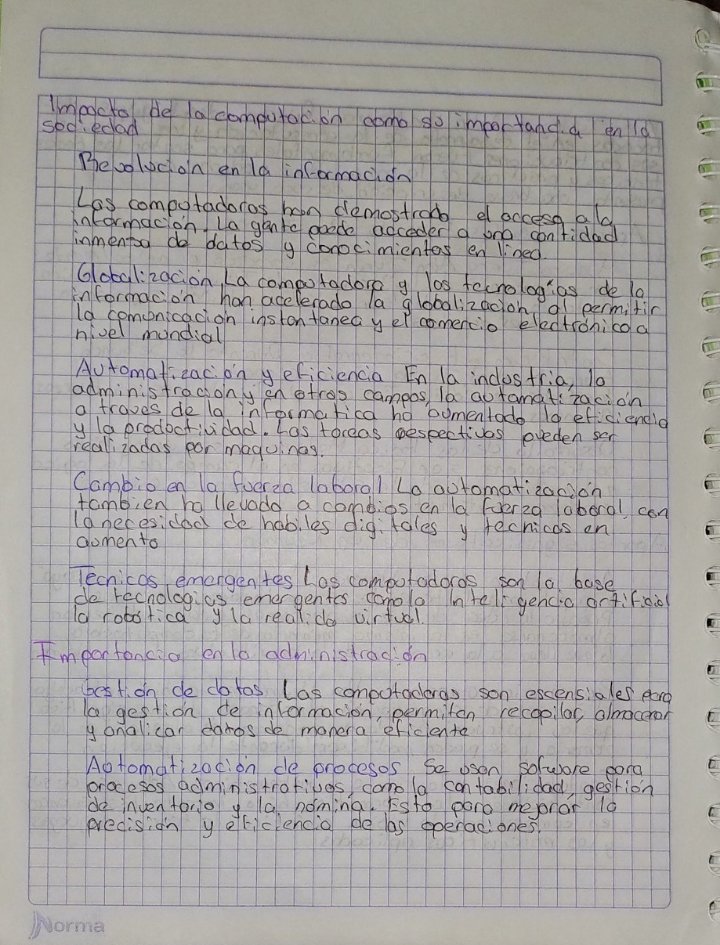 Impacto de la computación como su importancia en la
sociedad
Revolución en la información
Las computadoras han demostrado el acceso a la
información. La gente puede acceder a una cantidad
inmensa de datos y conocimientos en linea.
Globalización, La computadora y los tecnologías de la
información han acelerado la globalización, al permitir
la comunicación instantanea y el comercio electrónico a
nivel mundial
Automatización y eficiencia En la industria, la
administracion y en otros campos, la automatización
a traves de la informatica ha aumentado la eficiencia
y la productividad. Las tareas respectivas pueden ser
realizadas por maquinas.
Cambio en la fuerza laboral La automatización
tambien ha llevado a cambios en la fuerza laboral, con
la necesidad de habiles digitales y técnicas en
aumento
Tecnicas emergentes Las computadoras son la base
de tecnologias emergentes como la inteligencia artificial
la robótica y la realida virtual.
Importancia en la administración
Gestión de datos Las computadoras son escensiales para
la gestión de información, permiten recopilar, almacenar
y analicar datos de manera eficiente
Automatización de procesos Se usan sofware para
procesos administrativos, como la contabilidad, gestión
de inventario y la nómina. Esto para mejorar la
precisión y eficiencia de las operaciones.
Norma